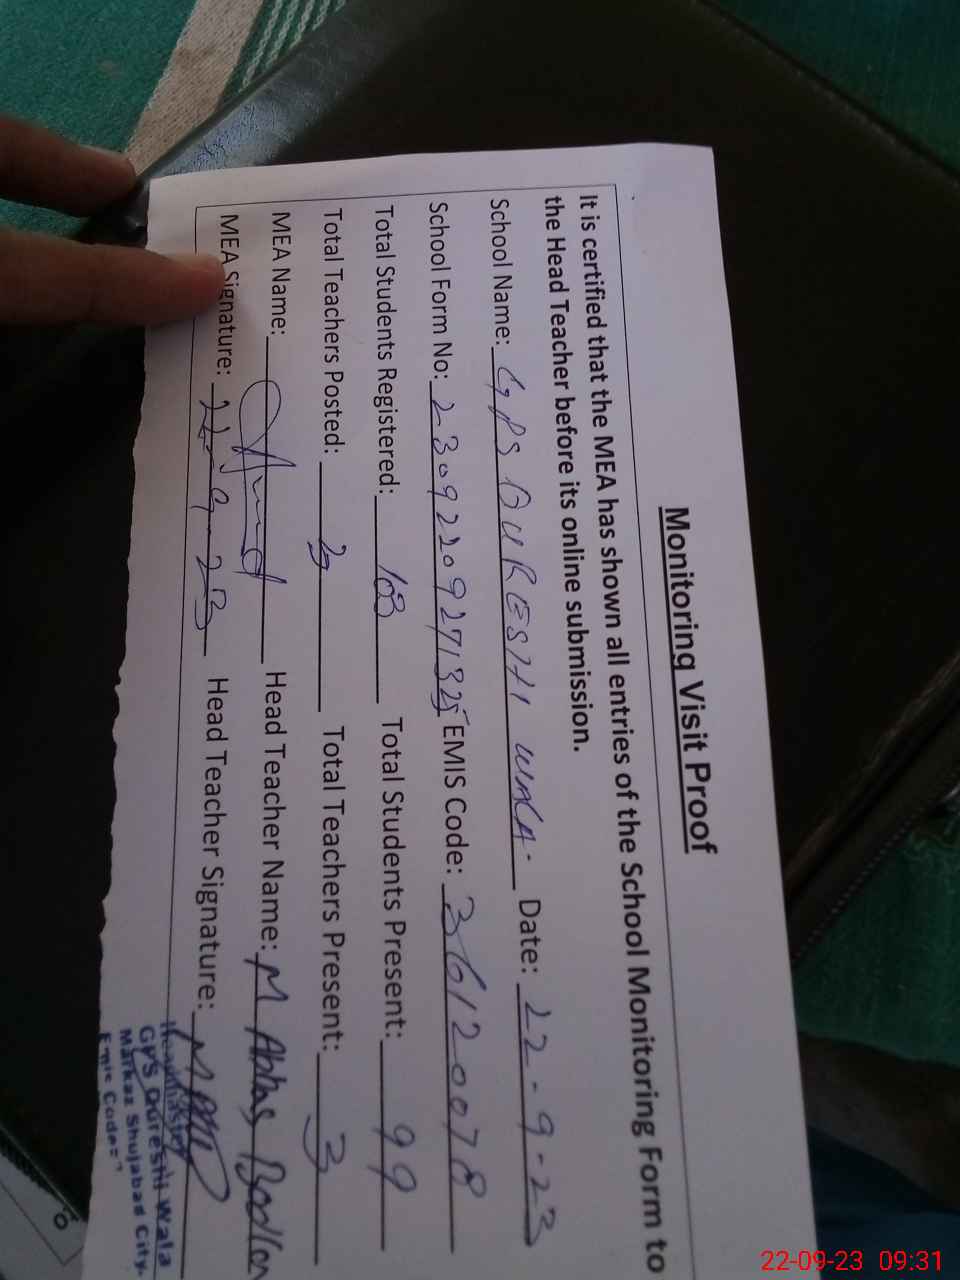 Monitoring Visit Proof
It is certified that the MEA has shown all entries of the School Monitoring Form to
the Head Teacher before its online submission.
School Name: GPS QURESHI WALA. Date: 22-9-23
School Form No: 23092209271325 EMIS Code: 36120078
Total Students Registered: 103 Total Students Present: 99
Total Teachers Posted: 3 Total Teachers Present: 3
MEA Name: Head Teacher Name: M Abbas
MEA Signature: 22-9-23 Head Teacher Signature:
Headmaster
GPS Qureshi Wala
Markaz Shujabad City.
Emis Code=
22-09-23 09:31